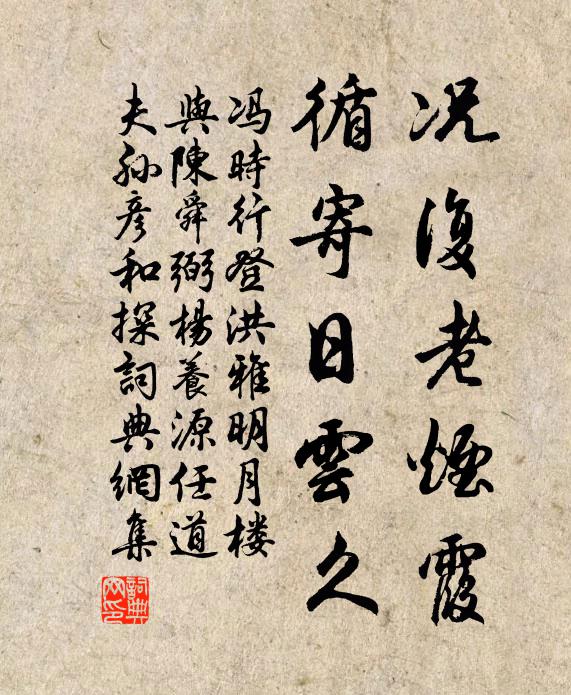 况復老煙霞
循寄日雲久
冯時行登洪雅明月楼
與陳舜弼楊養源任道
夫孙彦和探詞典網集
詞典網印